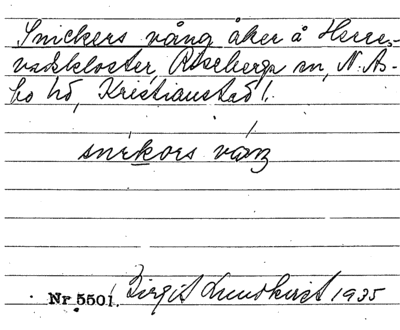 Snickers vång åker å Herre-
vadskloster, Riseberga sn, N. Ås-
bo hd, Kristianstad l.
snékors váŋ
Nr 5501. Birgit Lundkvist 1935